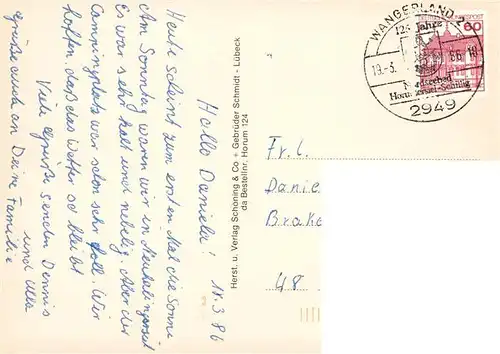 Hallo Daniela! 18.3.86
Heute scheint zum ersten Mal die Sonne
Am Sonntag waren wir in Neuharlingersiel
Es war sehr kalt und nebelig. Aber der
Campingplatz war schon sehr voll. Wir
hoffen, daß das Wetter so bleibt
Viele Grüße senden Dennis
und Ulla
Grüße auch an Deine Familie
Herst. u. Verlag Schöning & Co + Gebrüder Schmidt - Lübeck
da Bestellnr. Horum 124
WANGERLAND 2
125 Jahre
Nordseebad
Horumersiel-Schillig
2949
60
Frl.
Danie
Brake
48